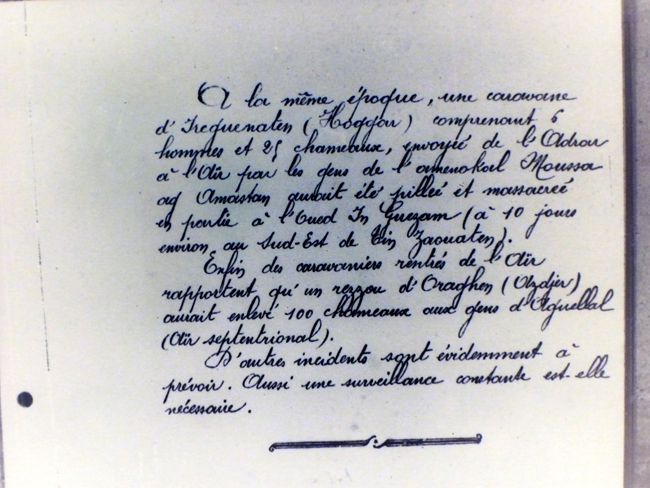 A la même époque, une caravane
d'Ireguenaten (Hoggar) comprenant 6
hommes et 25 chameaux, envoyée de l'Adrar
à l'Aïr par les gens de l'amenokal Moussa
ag Amastan aurait été pillée et massacrée
en partie à l'Oued In Guezam (à 10 jours
environ au Sud-Est de Tin Zaouaten).
Enfin des caravaniers rentrés de l'Aïr
rapportent qu'un rezzou d'Oraghen (Azdjer)
aurait enlevé 100 chameaux aux gens d'Aguellal
(Aïr septentrional).
D'autres incidents sont évidemment à
prévoir. Aussi une surveillance constante est-elle
nécessaire.